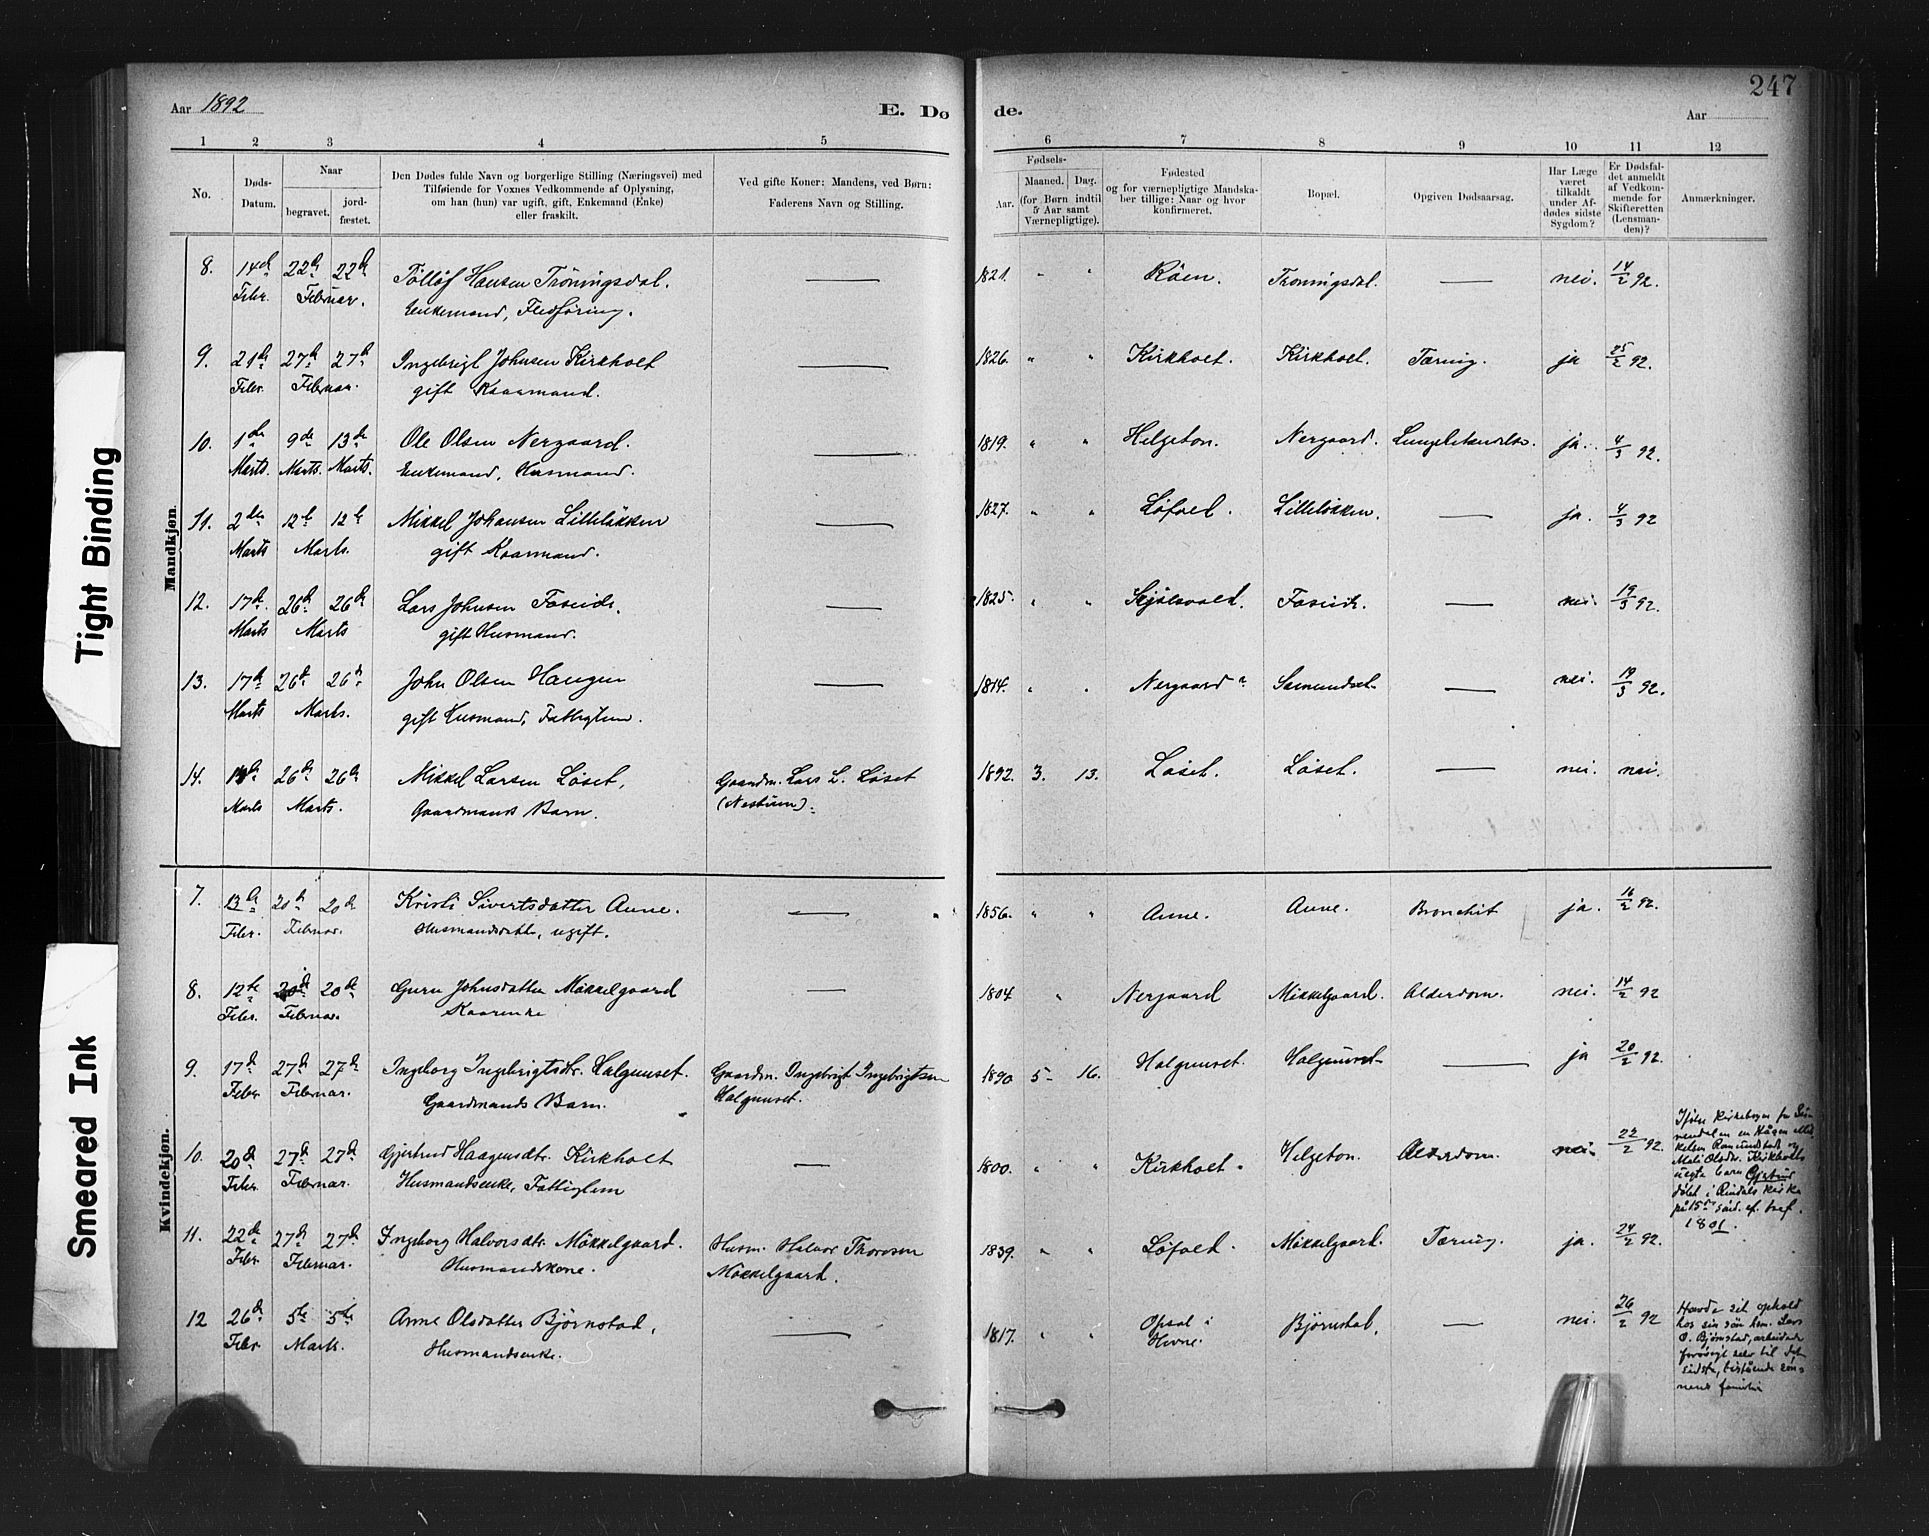 247
Aar 1892
E. Dø
de.
Aar
1 2 3 4 5 6 7 8 9 10 11 12
No.
Døds-
Datum.
Naar
begravet.
jord-
fæstet.
Den Dødes fulde Navn og borgerlige Stilling (Næringsvei) med
Tilføiende for Voxnes Vedkommende af Oplysning,
om han (hun) var ugift, gift, Enkemand (Enke)
eller fraskilt.
Ved gifte Koner: Mandens, ved Børn:
Faderens Navn og Stilling.
Fødsels-
Aar.
Maaned.
Dag.
(for Børn indtil
5 Aar samt
Værnepligtige).
Fødested
og for værnepligtige Mandska-
ber tillige: Naar og hvor
konfirmeret.
Bopæl.
Opgiven Dødsaarsag.
Har Læge
været
tilkaldt
under Af-
dødes sidste
Sygdom?
Er Dødsfal-
det anmeldt
af Vedkom-
mende for
Skifteretten
(Lensman-
den)?
Anmærkninger.
Mandkjøn.
8. 14de 22de 22de Tølløf Hansen Trøningsdal. — 1821. " " Røen. Trøningsdal. — nei. 14/2 92.
Febr. Februar. Enkemand, Fledføring.
9. 21de 27de 27de Ingebrigt Johnsen Kirkholt — 1826. " " Kirkholt. Kirkholt. Tæring. ja 25/2 92.
Febr. Februar. gift Kaarmand.
10. 1ste 9de 13de Ole Olsen Nergaard. — 1819. " " Helgeton. Nergaard. Lungebetændelse. ja. 4/3 92.
Marts. Marts. Marts. Enkemand, Husmand.
11. 2den 12te 12te Mikkel Johansen Lilleløkken — 1827. " " Løfald. Lilleløkken. — ja. 4/3 92
Marts Marts. gift Kaarmand.
12. 17de 26de 26de Lars Johnsen Foseide. — 1825. " " Skjølsvold. Foseide. — nei. 19/3 92.
Marts Marts gift Husmand.
13. 17de 26de 26de John Olsen Haugen — 1814. " " Nergaard? Sæmundset — nei. 19/3 92.
Marts Marts. gift Husmand, Fattiglem.
14. 26de 26de Mikkel Larsen Løset, Gaardm. Lars L. Løset 1892. 3. 13. Løset. Løset. — nei. nei.
Marts Marts. Gaardmands Barn. (Nestuen).
Kvindekjøn.
7. 13de 20de 20de Kristi Sivertsdatter Aune. — 1856. " " Aune. Aune. Bronchit ja. 16/2 92.
Febr. Februar. Husmandsdatt., ugift.
8. 12te 20de 20de Guru Johnsdatter Møkkelgaard — 1804 " Nergaard Møkkelgaard. Alderdom. nei. 14/2 92
Febr. Februar. Kaarenke
9. 17de 27de 27de Ingeborg Ingebrigtsdtr. Halgunset. Gaardm. Ingebrigt Ingebrigtsen 1890 5 16. Halgunset. Halgunset — ja 20/2 92.
Febr. Februar. Gaardmands Barn. Halgunset.
10. 20de 27de 27de Gjertrud Haagensdtr. Kirkholt — 1800. " " Kirkholt. Helgeton. Alderdom. nei. 22/2 92.
Febr. Februar. Husmandsenke, Fattiglem
Ifølge kirkebogen for Sur-
nendalen en Hågen Mik-
kelsen Romundstads og
Mali Olsdtr. Kirkholts
uægte barn Gjertrud
døbt i Rindals kirke
på 15de sönd. ef. tref.
1801.
11. 22de 27de 27de Ingeborg Halvorsdtr. Møkkelgaard. Husm. Halvor Thoresen 1839. " " Løfald. Møkkelgaard. Tæring. ja. 24/2 92.
Febr. Februar. Husmandskone. Møkkelgaard.
12 26de 5te 5te Anne Olsdatter Bjørnstad, — 1817. " " Opsal i Bjørnstad. — nei. 26/2 92
Febr. Marts. Husmandsenke. Hevne.
Havde sit ophold
hos sin sön hsm. Lars
O. Bjørnstad, arbeidede
forövrigt selv til det
sidste, bistående sön-
nens familie
Tight Binding
Smeared Ink